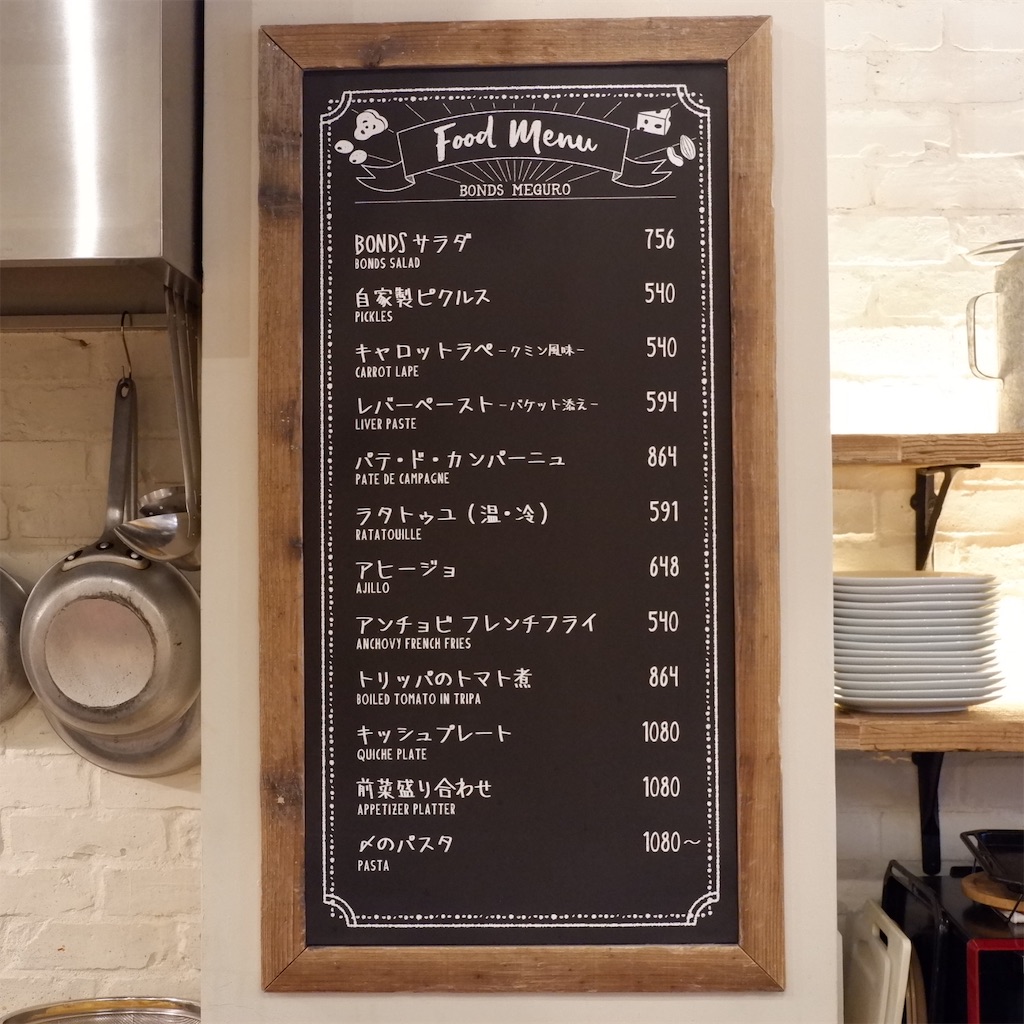 Food Menu
BONDS MEGURO
BONDS サラダ 756
BONDS SALAD
自家製ピクルス 540
PICKLES
キャロットラペ -クミン風味- 540
CARROT LAPE
レバーペースト -バケット添え- 594
LIVER PASTE
パテ・ド・カンパーニュ 864
PATE DE CAMPAGNE
ラタトゥユ (温・冷) 591
RATATOUILLE
アヒージョ 648
AJILLO
アンチョビ フレンチフライ 540
ANCHOVY FRENCH FRIES
トリッパのトマト煮 864
BOILED TOMATO IN TRIPA
キッシュプレート 1080
QUICHE PLATE
前菜盛り合わせ 1080
APPETIZER PLATTER
〆のパスタ 1080〜
PASTA